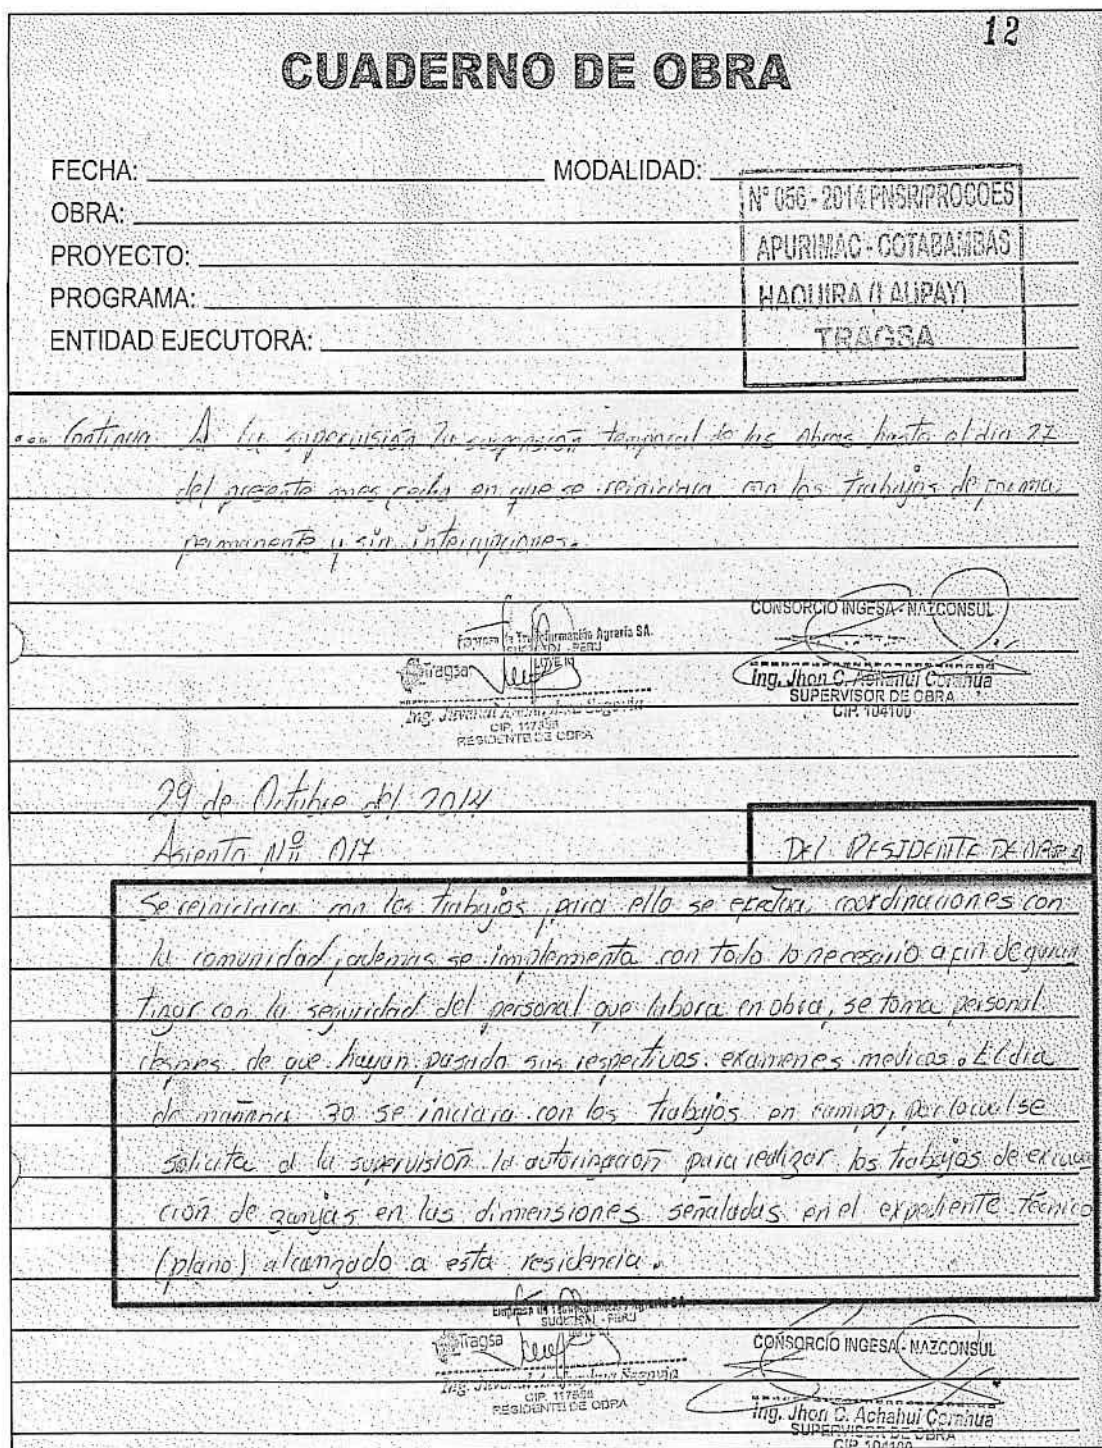 12
CUADERNO DE OBRA
FECHA: MODALIDAD:
OBRA:
PROYECTO:
PROGRAMA:
ENTIDAD EJECUTORA:
Nº 056 - 2014 PNSR/PROCOES
APURIMAC - COTABAMBAS
HAQUIRA (LAUPAY)
TRAGSA
... Continua A la supervisión la suspensión temporal de las obras hasta el dia 27
del presente mes fecha en que se reiniciara con los trabajos de forma
permanente y sin interrupciones.
Empresa de Transformación Agraria SA.
SUCURSAL - PERU
LOTE
Tragsa
Ing. Segovia
CIP.
RESIDENTE DE OBRA
CONSORCIO INGESA - NAZCONSUL
Ing. Jhon C. Achahui Cornhua
SUPERVISOR DE OBRA
CIP. 104100
29 de Octubre del 2014
Asiento Nº 017 DEL RESIDENTE DE OBRA
Se reiniciara con los trabajos para ello se coordinaciones con
la comunidad, ademas se implementa con todo lo necesario a fin de garan
tizar con la seguridad del personal que labora en obra, se toma personal
despues de que hayan pasado sus respectivos examenes medicos. El dia
de mañana 30 se iniciara con los trabajos en campo, por lo cual se
solicita a la supervisión la autorización para realizar los trabajos de excava
ción de zanjas en las dimensiones señaladas en el expediente técnico
(plano) alcanzado a esta residencia.
Empresa de Transformación Agraria SA
SUCURSAL - PERU
Tragsa
Ing. Segovia
CIP.
RESIDENTE DE OBRA
CONSORCIO INGESA - NAZCONSUL
Ing. Jhon C. Achahui Cornhua
SUPERVISOR DE OBRA
CIP. 104100